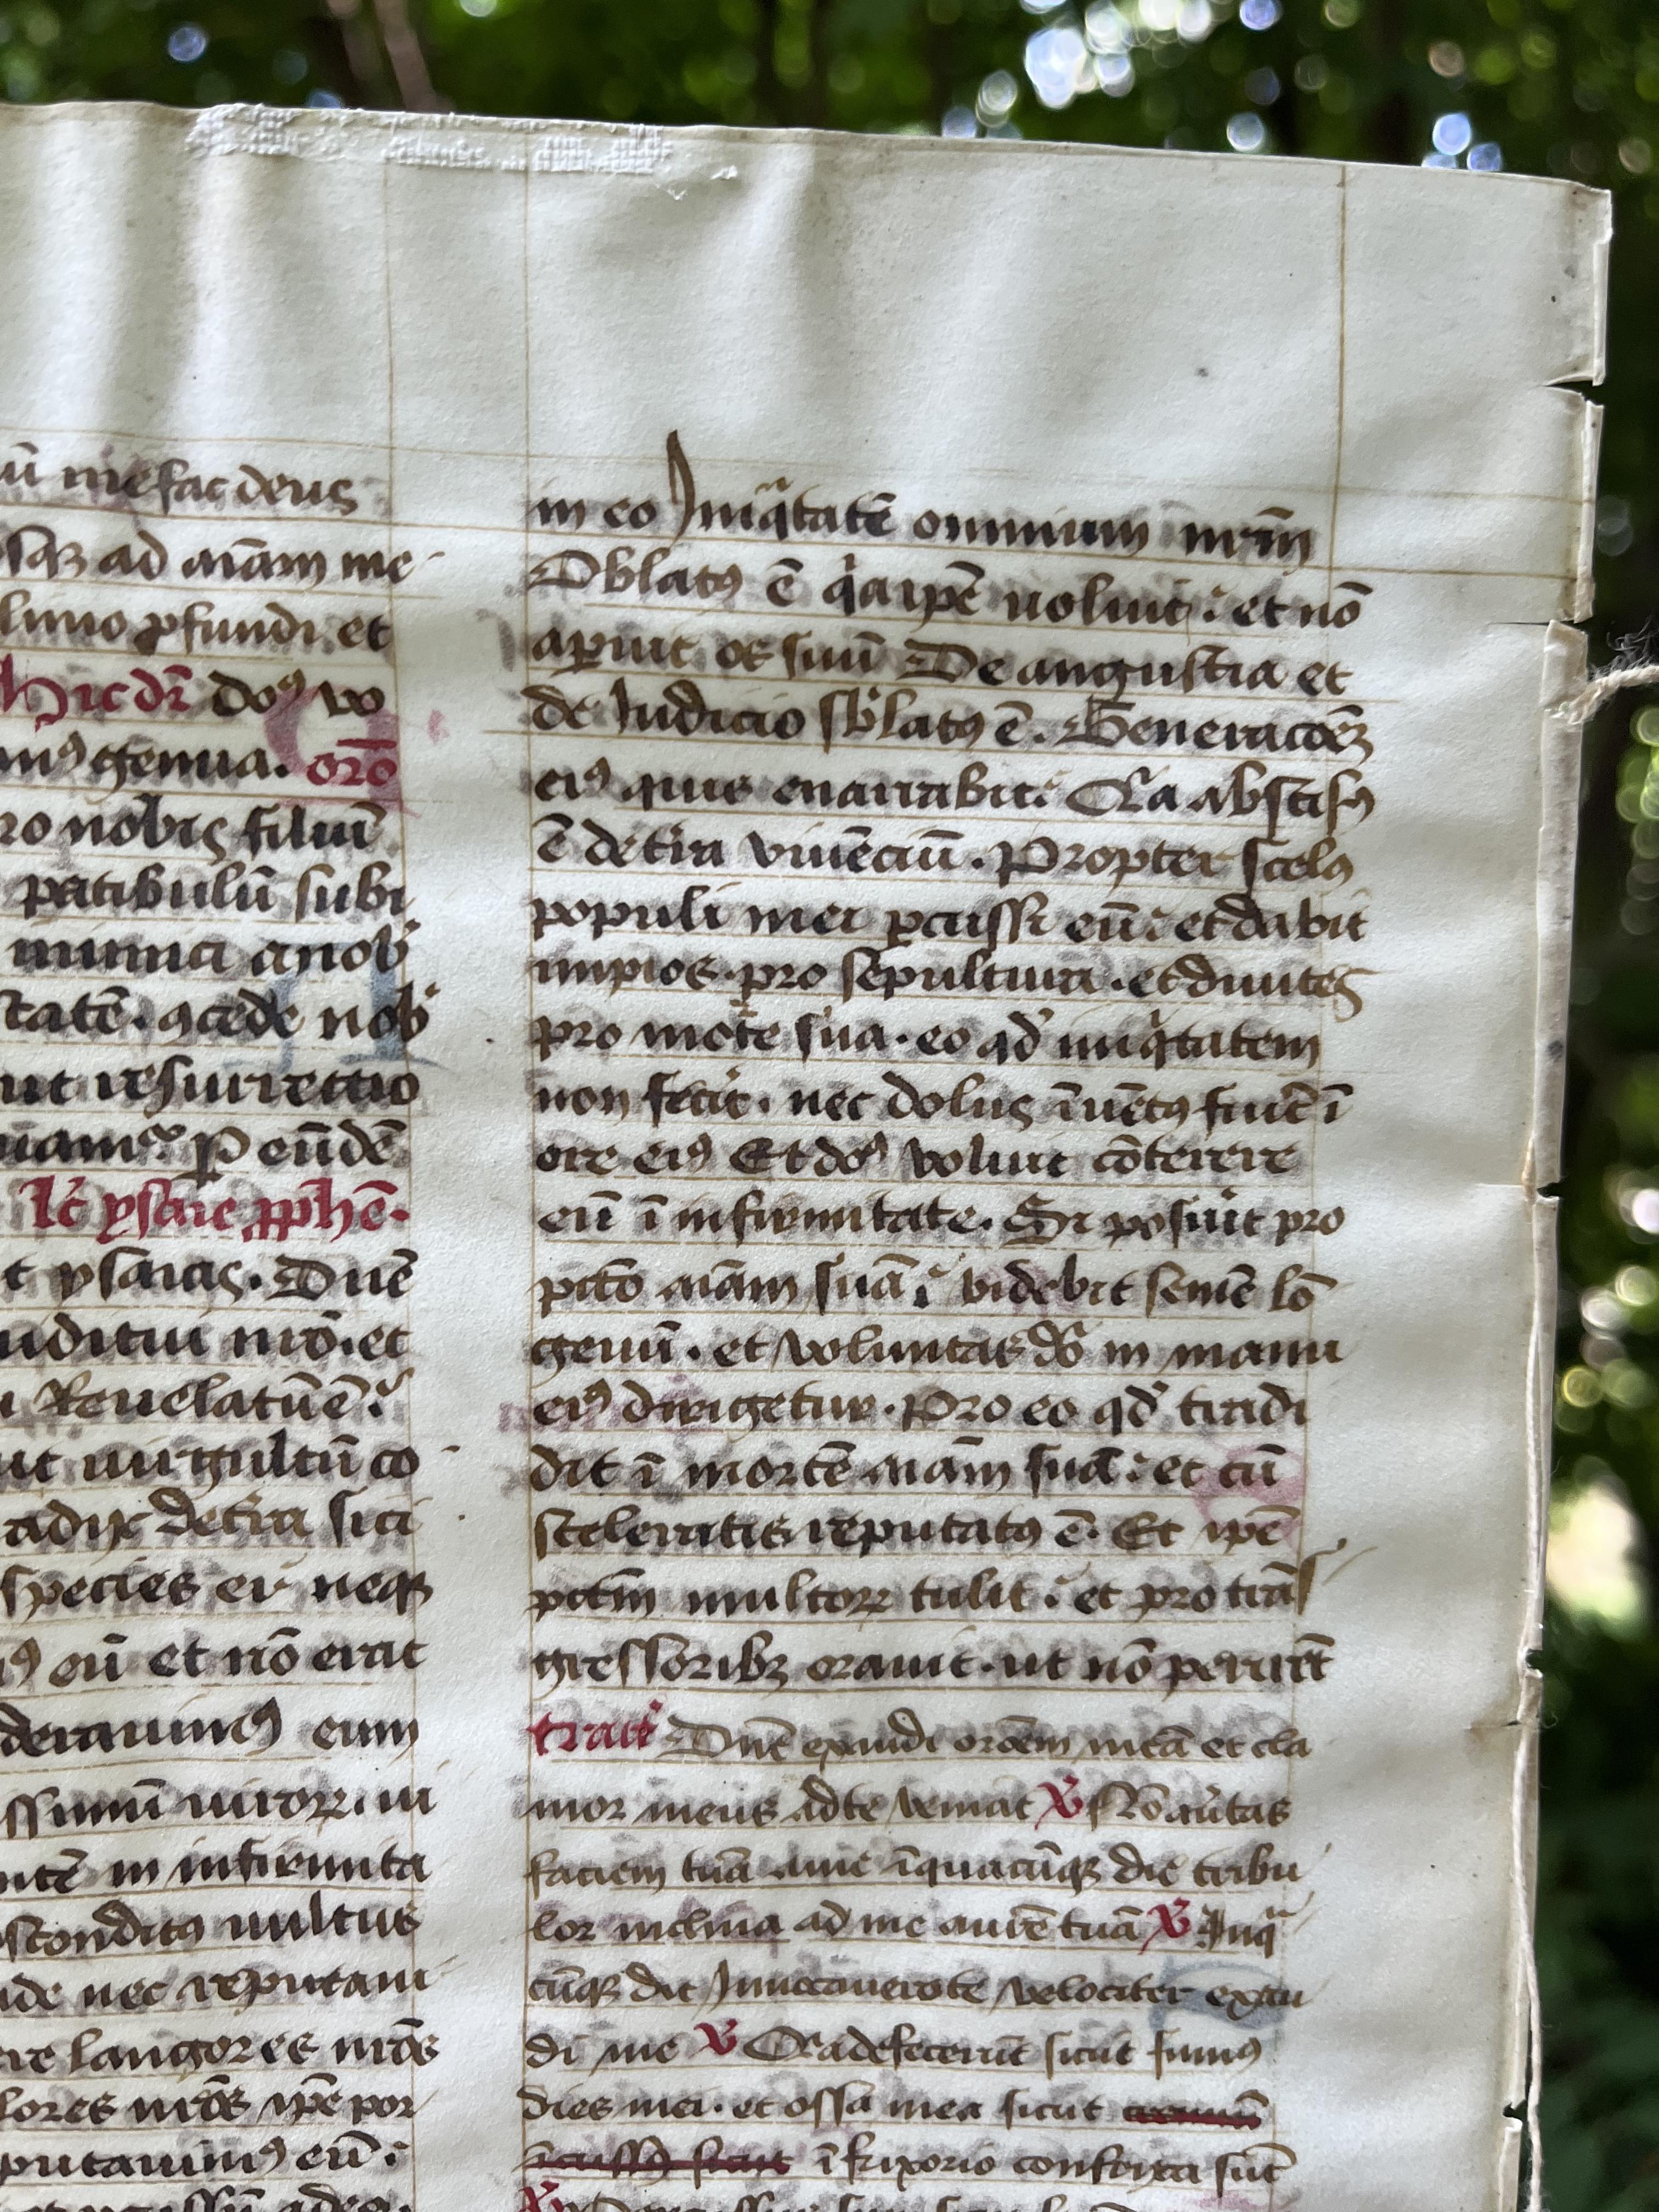 ū me fac deus
sqꝫ ad aīam me
limo ꝓfundi. et
hic dr̄ doꝰ vo
mꝰ genua. oro
ro nobis filiū
patibulū subi
inimici a nob
tatē. ꝯcede nob
ut resurrectio
P eūdē
lc̄ ysaie ꝓphē.
t ysaias. Dn̄e
uditui nr̄o. et
i Reuelatū ē
ut uirgultū co
radix de tr̄a siti
species ei neqꝫ
ꝰ eū et nō erat
derauimꝰ eum
ssimū uiroꝝ. ui
ntē in infirmita
sconditꝰ uultus
nde nec reputaui
re langores nr̄os
lores nr̄os ip̄e por
putauimꝰ eū
in eo Iniqͥtatē omnium nr̄m
Oblatꝰ ē qͥa ip̄e uoluit et nō
aꝑuit os suū De angustia et
de Iudicio sb̓latꝰ ē. Generacōēꝫ
eiꝰ quis enarrabit Qͥa abscisꝰ
ē de tr̄a viuēciū. Propter scelꝰ
populi mei ꝑcussi eū et dabit
impios pro sepultura. et diuites
pro morte sua. eo qd̓ iniqͥtatem
non fecit. nec dolus īuētꝰ fuit̄ ī
ore eiꝰ Et doꝰ voluit cōterere
eū ī infirmitate. Si posūit pro
pctō aīam suā videbit semē lō
geuū. et voluntas dō in manu
eiꝰ dirigetur. Pro eo qd̓ tradi
dit ī mortē aīam suā et cū
sceleratis reputatꝰ ē. Et ip̄e
pctm̄ multoꝝ tulit et pro trās
gressoribꝫ orauit. ut nō perirēt
tract̓ Dn̄e exaudi orōem meā et cla
mor meus ad te veniat ℣ Nō au̓tas
faciem tuā a me ī quacūqꝫ die tribu
lor inclina ad me aurē tuā ℣ Inqͣ
cūqꝫ die Inuocauero te velociter exau
di me ℣ Qͥa defecerūt sicut fumꝰ
dies mei. et ossa mea sicut
ī frixorio confrixa sūt